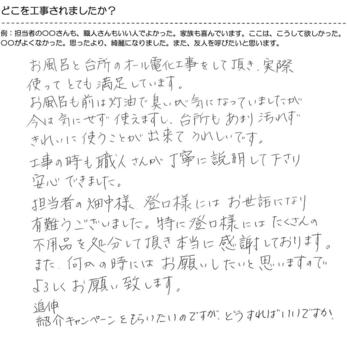 どこを工事されましたか？
例：担当者の〇〇さんも、職人さんもいい人でよかった。家族も喜んでいます。ここは、こうして欲しかった。
〇〇がよくなかった。思ったより、綺麗になりました。また、友人を呼びたいと思います。
お風呂と台所のオール電化工事をして頂き、実際
使ってとても満足しています。
お風呂も前は灯油で臭いが気になっていましたが
今は気にせず使えますし、台所もあまり汚れず
きれいに使うことが出来てうれしいです。
工事の時も職人さんが丁寧に説明して下さり
安心できました。
担当者の畑中様、登口様にはお世話になり
有難うございました。特に登口様にはたくさんの
不用品を処分して頂き本当に感謝しております。
また、何かの時にはお願いしたいと思いますので
よろしくお願い致します。
追伸
紹介キャンペーンをもらいたいのですが、どうすればいいですか?